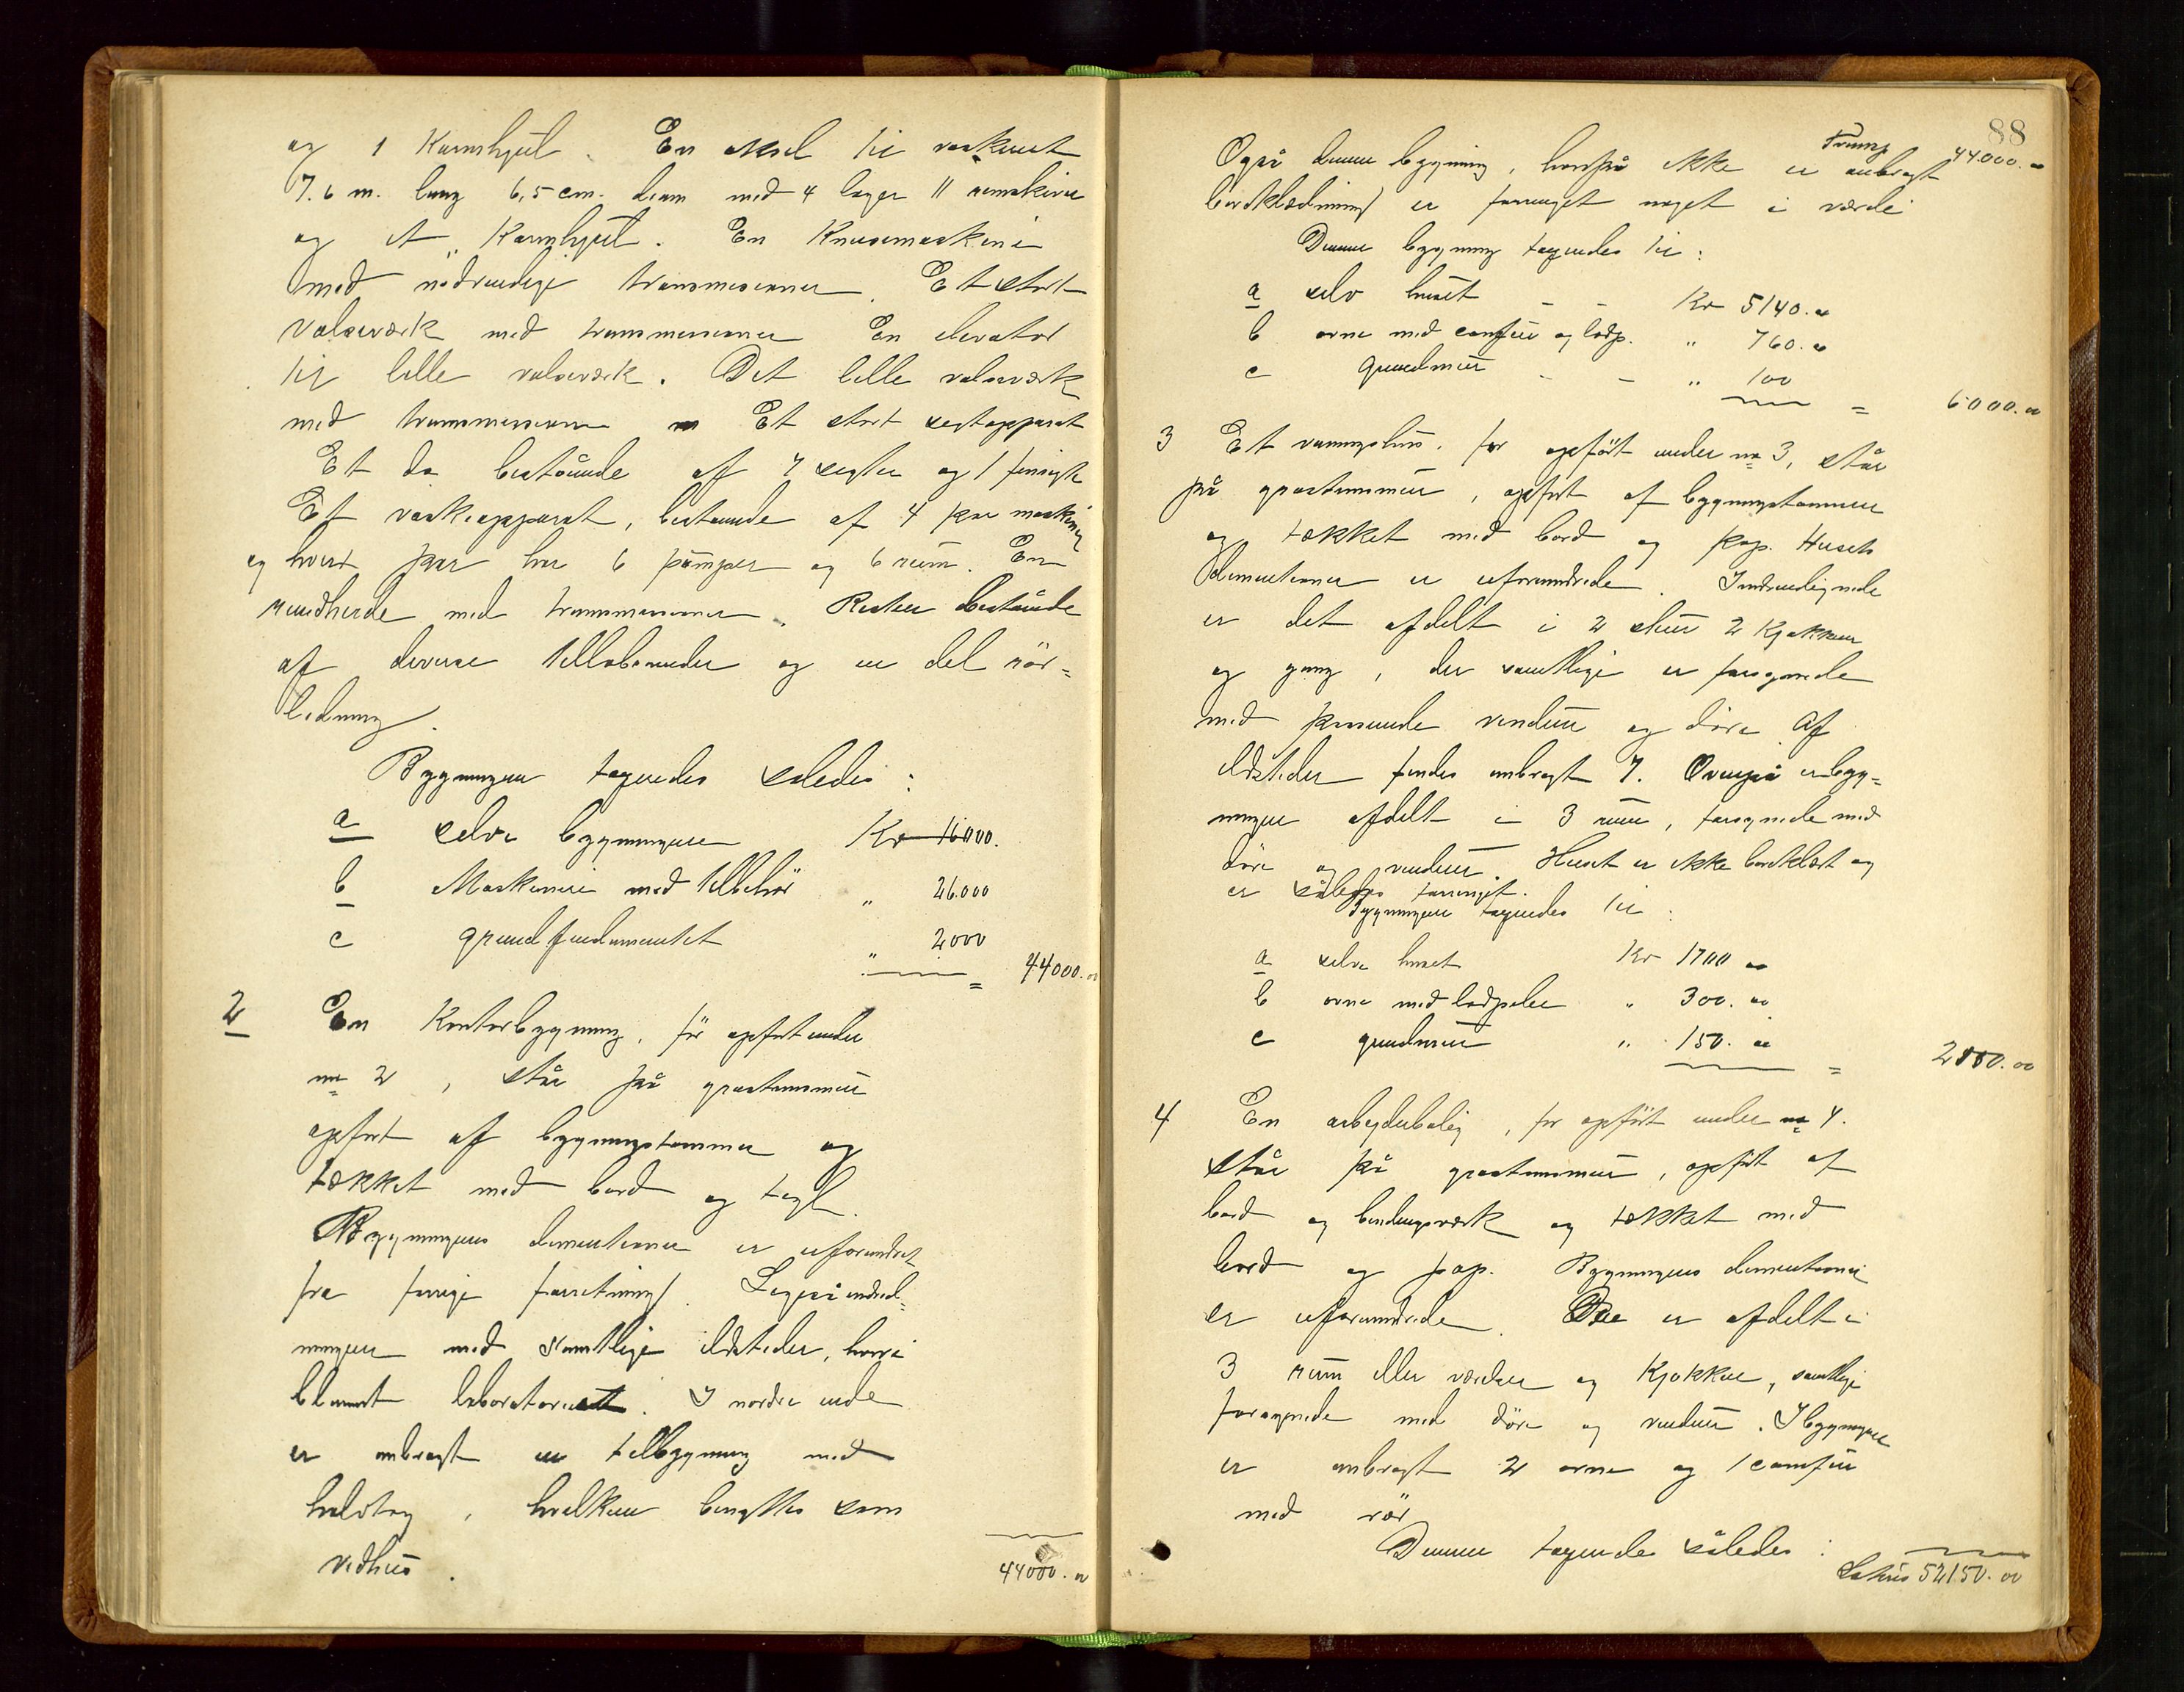 og 1 Kamhjul. En aksel til vaskeriet
7.6 m. lang 6,5 cm. diam med 4 lager 11 remskiver
og et Kamhjul. En Knusemaskine
med nödvendige transmesioner. Et stort
Valseværk med transmesioner En elevator
til lille valseværk. Det lille valseværk
med transmesioner Et stort sigtapparat
Et do bestående af 4 sigter og 1
Et vaskeapparat, bestaaende af 4 par maskiner
og hvert par har 6 pumper og 6 rum. En
rundherde med transmesioner. Resten bestående
af diverse tilbehör og en del rör=
ledning.
Bygningen taxeredes således:
a selve bygningen Kr 16000.
b Maskineri med tilbehör " 26.000
c grundfundamentet " 2000
= 44000.00
2 En Kontorbygning, för opfört under
no 2, står på gråstensmur
opfört af bygningstømmer og
tækket med bord og tagl.
Bygningens dimentioner er uforandret
fra forrige forretning. Ligeså inddel=
ningen med samtlige ildsteder, hvori
blannt laboratoriet. I nordre ende
er anbragt en tilbygning med
halvtag, hvilken benyttes som
vedhus.
44000.00
88
44000.00
Også denne bygning, hvorpå ikke er anbragt
bordklædning er forringet noget i værdi
Denne bygning taxeredes til:
a selv huset - - Kr 5140.00
b ovne med comfur og ladp. " 760.00
c grundmur - - " 100
= 6000.00
3 Et vaaningshus, för opfört under no 3, står
på gråstensmur, opfört af bygningstømmer
og tækket med bord og pap. Husets
dimentioner er uforandrede. Indvendig nede
er det afdelt i 2 stuer 2 Kjøkkener
og gang, der samtlige er forsynede
med passende vinduer og döre. Af
ildsteder findes anbragt 7. Ovenpå er byg=
ningen afdelt i 3 rum, forsynede med
döre og vinduer. Huset er ikke bordklædt og
er således forringet.
Bygningen taxeredes til:
a selve huset Kr 1700 00
b ovne med ladpeler " 300.00
c grundmur " 150.00
= 2150.00
4 En arbejderbolig, för opfört under no 4.
står på gråstensmur, opfört af
bord og bindingsværk og tækket med
bord og pap. Bygningens dimentioner
er uforandrede. Den er afdelt i
3 rum eller værelser og Kjøkken, samtlige
forsynede med döre og vinduer. I bygningen
er anbragt 2 ovne og 1 comfur
med rör
Denne taxeredes således:
Latus 52150.00